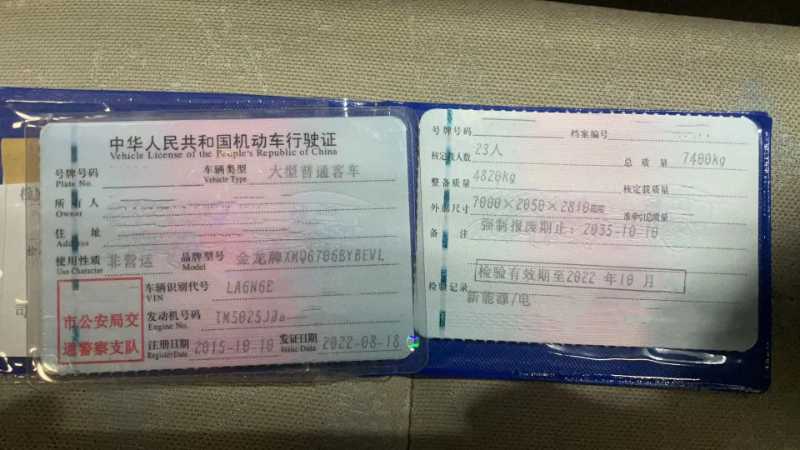 中华人民共和国机动车行驶证
Vehicle License of the People's Republic of China
号牌号码 车辆类型 大型普通客车
Plate No. Vehicle Type
所有人
Owner
住址
Address
使用性质 非营运 品牌型号 金龙牌XMQ6706BYBEVL
Use Character Model
车辆识别代号 LA6N6E
VIN
市公安局交
通警察支队
发动机号码 TM5025J0
Engine No.
注册日期 2015-10-10 发证日期 2022-08-18
Register Date Issue Date
号牌号码 档案编号
核定载人数 23人 总质量 7400kg
整备质量 4820kg 核定载质量
外廓尺寸 7000×2050×2810 准牵引总质量
备注 强制报废期止：2035-10-10
检验有效期至2022年10月
检验记录
新能源/电
司